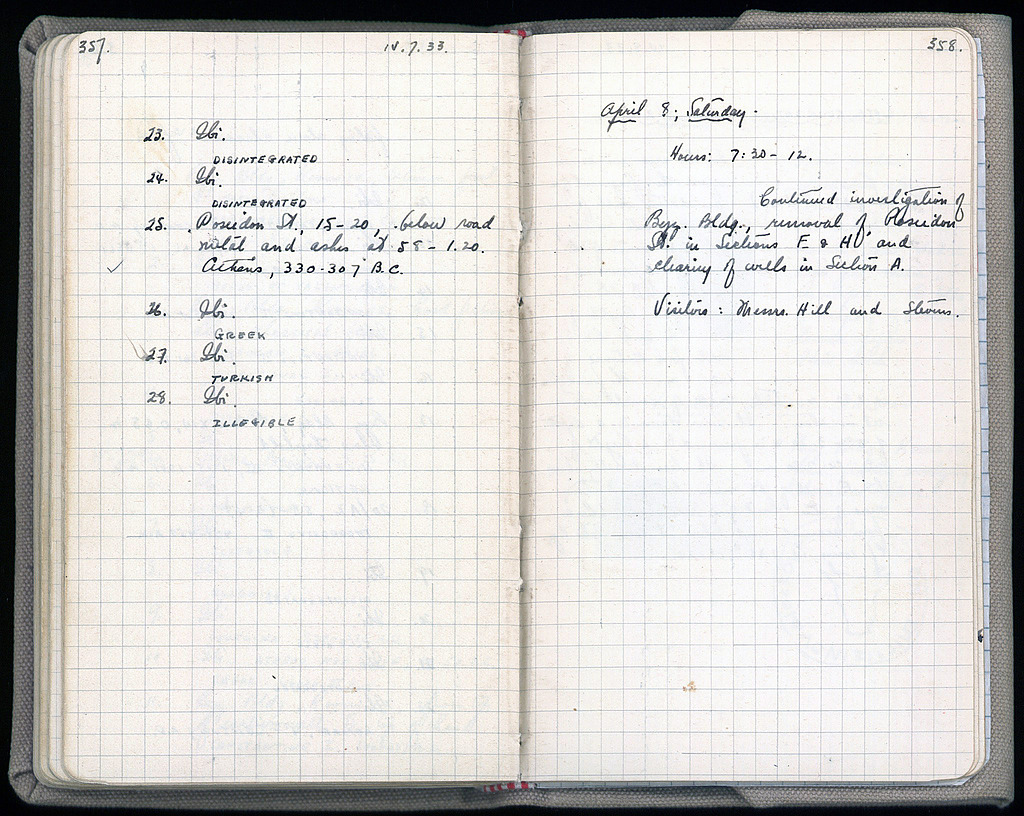 357.
IV.7.33.
23. Ibi.
DISINTEGRATED
24. Ibi.
DISINTEGRATED
25. Poseidon St., 15-20, below road
metal and ashes at 58-1.20.
Athens, 330-307 B.C.
26. Ibi.
GREEK
27. Ibi.
TURKISH
28. Ibi.
ILLEGIBLE
358.
April 8; Saturday.
Hours: 7:30-12.
Continued investigation of
Byz. Bldg., removal of Poseidon
St. in Sections E & H and
clearing of wells in Section A.
Visitors: Messrs. Hill and Stevens.